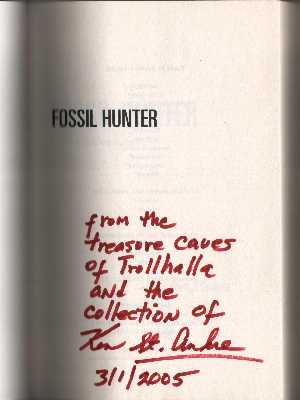 FOSSIL HUNTER
from the
treasure caves
of Trollhalla
and the
collection of
Ken St. Andre
3/1/2005